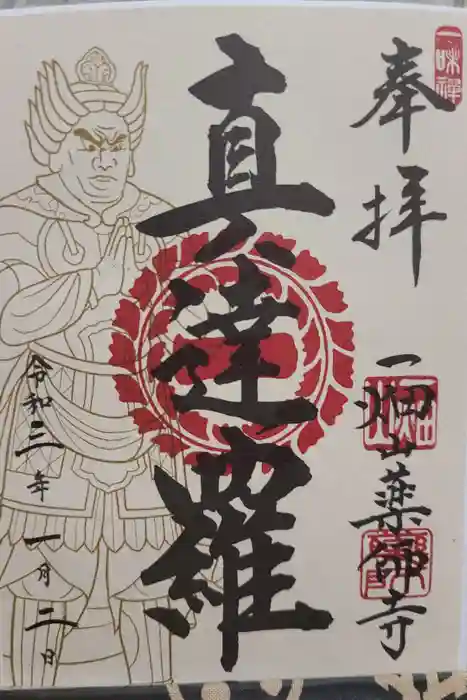 一味禅
奉拝
真達羅
一畑山薬師寺
令和三年一月二日